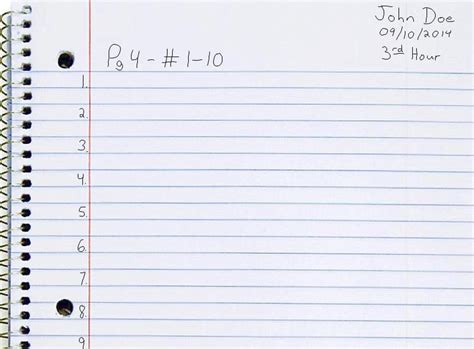 John Doe
09/10/2014
3rd Hour
Pg 4 - # 1-10
1.
2.
3.
4.
5.
6.
7.
8.
9